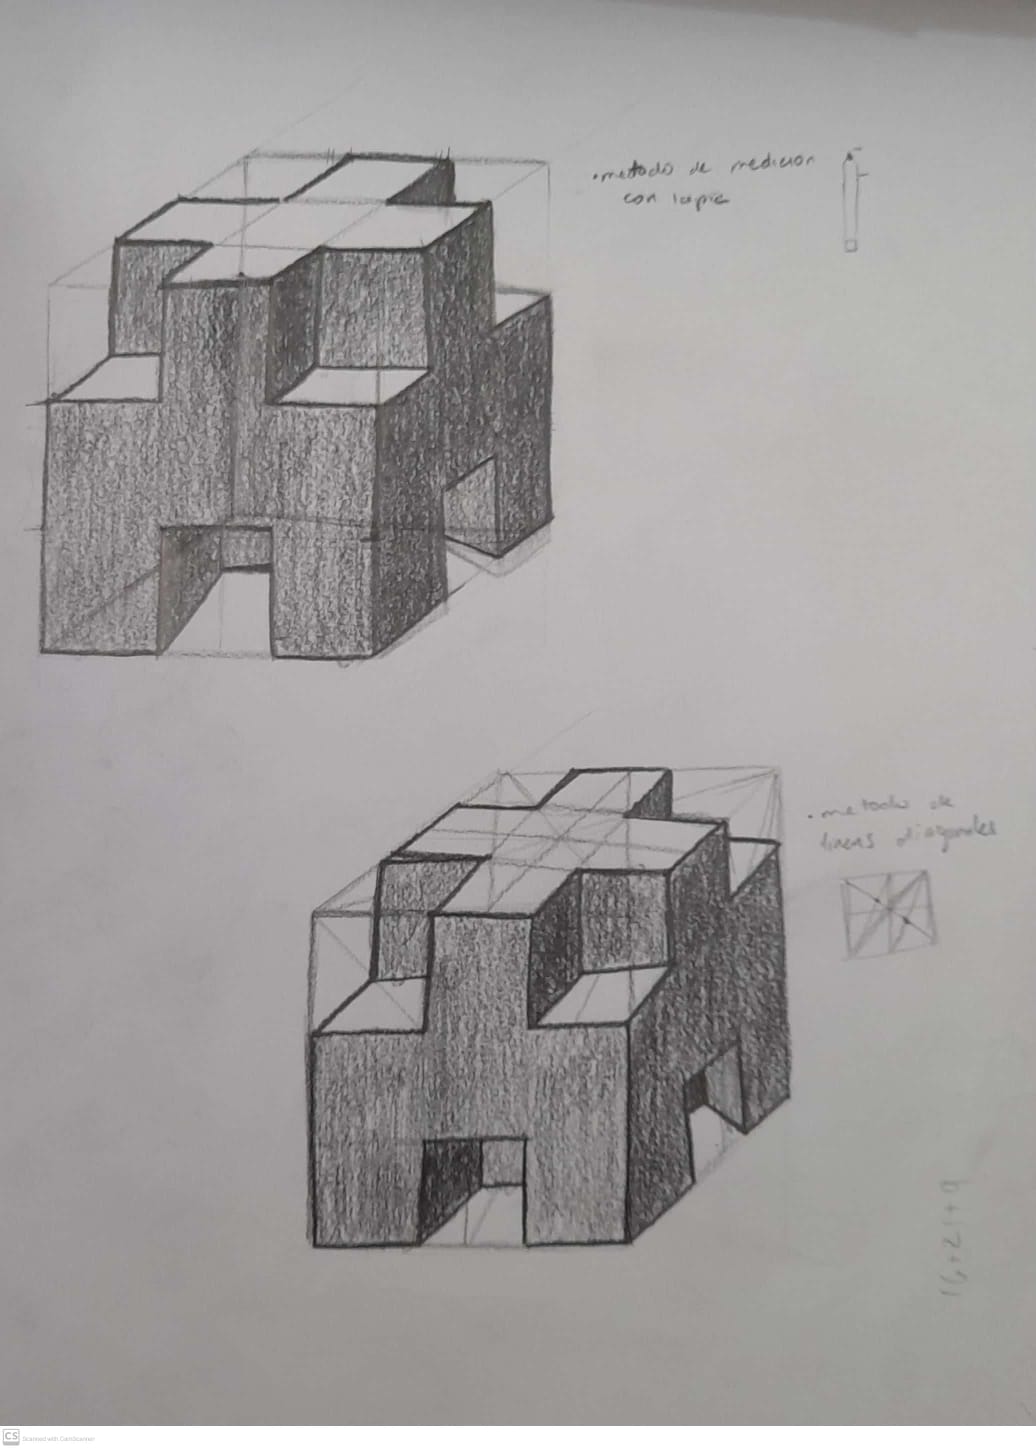 .metodo de medicion
con lapiz
.metodo de
lineas diagonales
CS Scanned with CamScanner